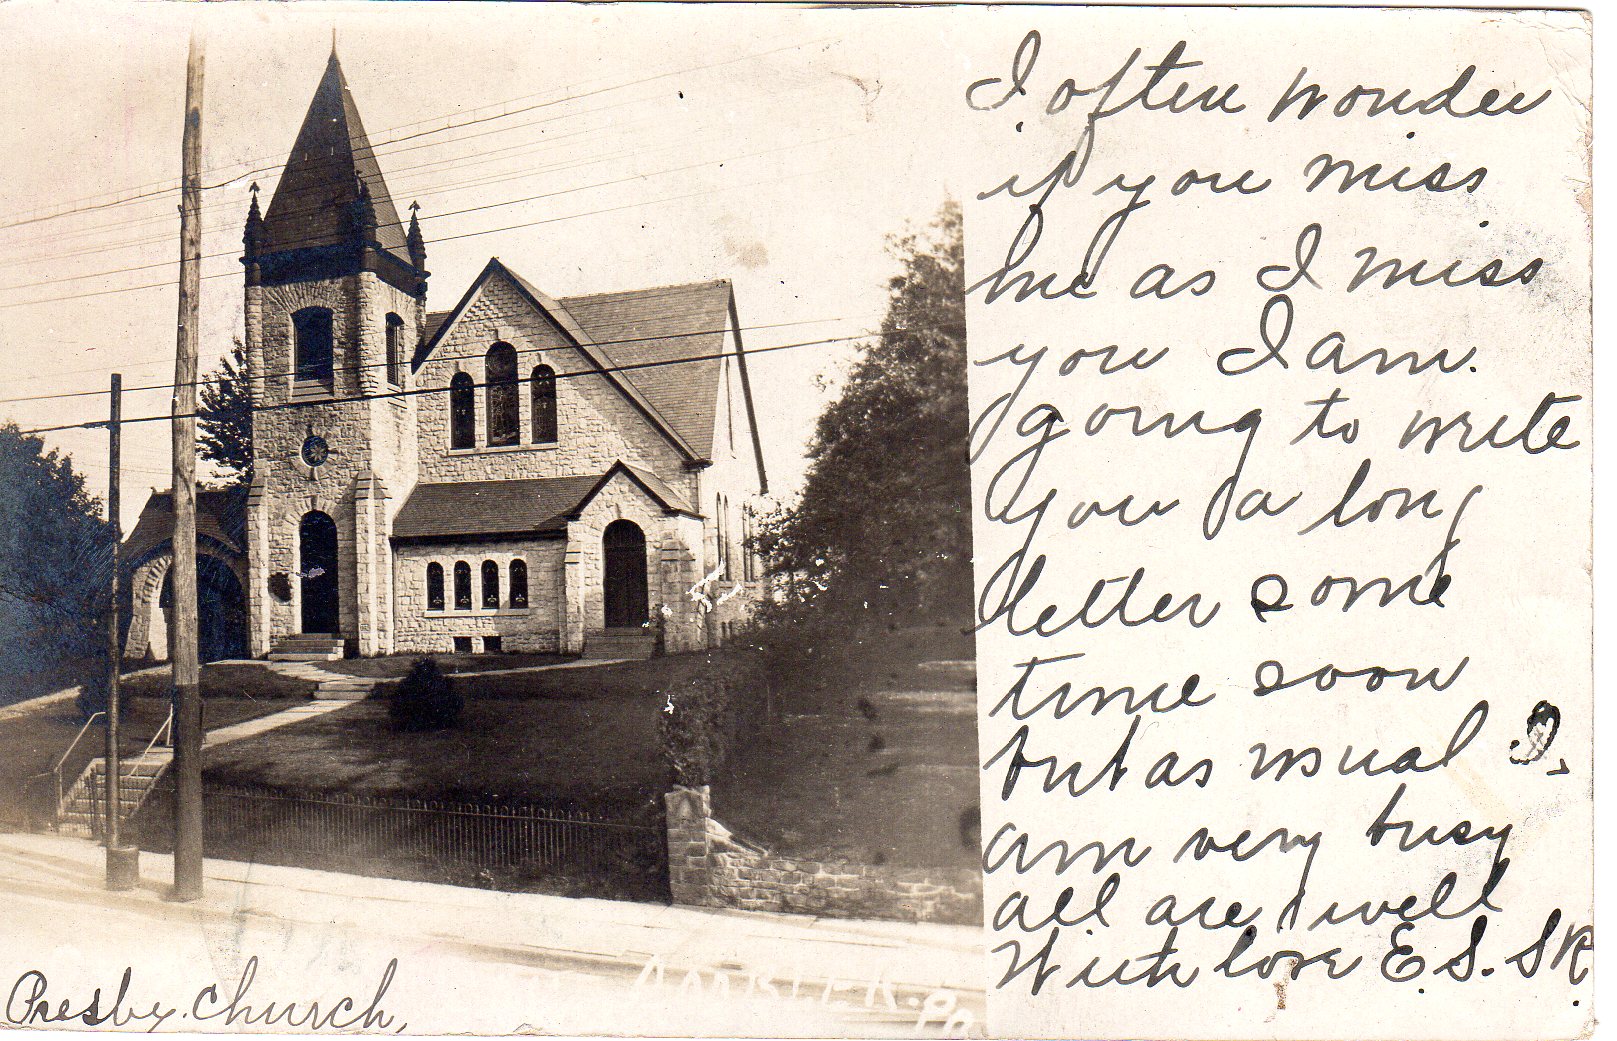 I often wonder
if you miss
me as I miss
you I am.
going to write
you a long
letter some
time soon
but as usual I.
am very busy
all are well
With love E.S. SR.
Presby. Church,
AMBLER. PA